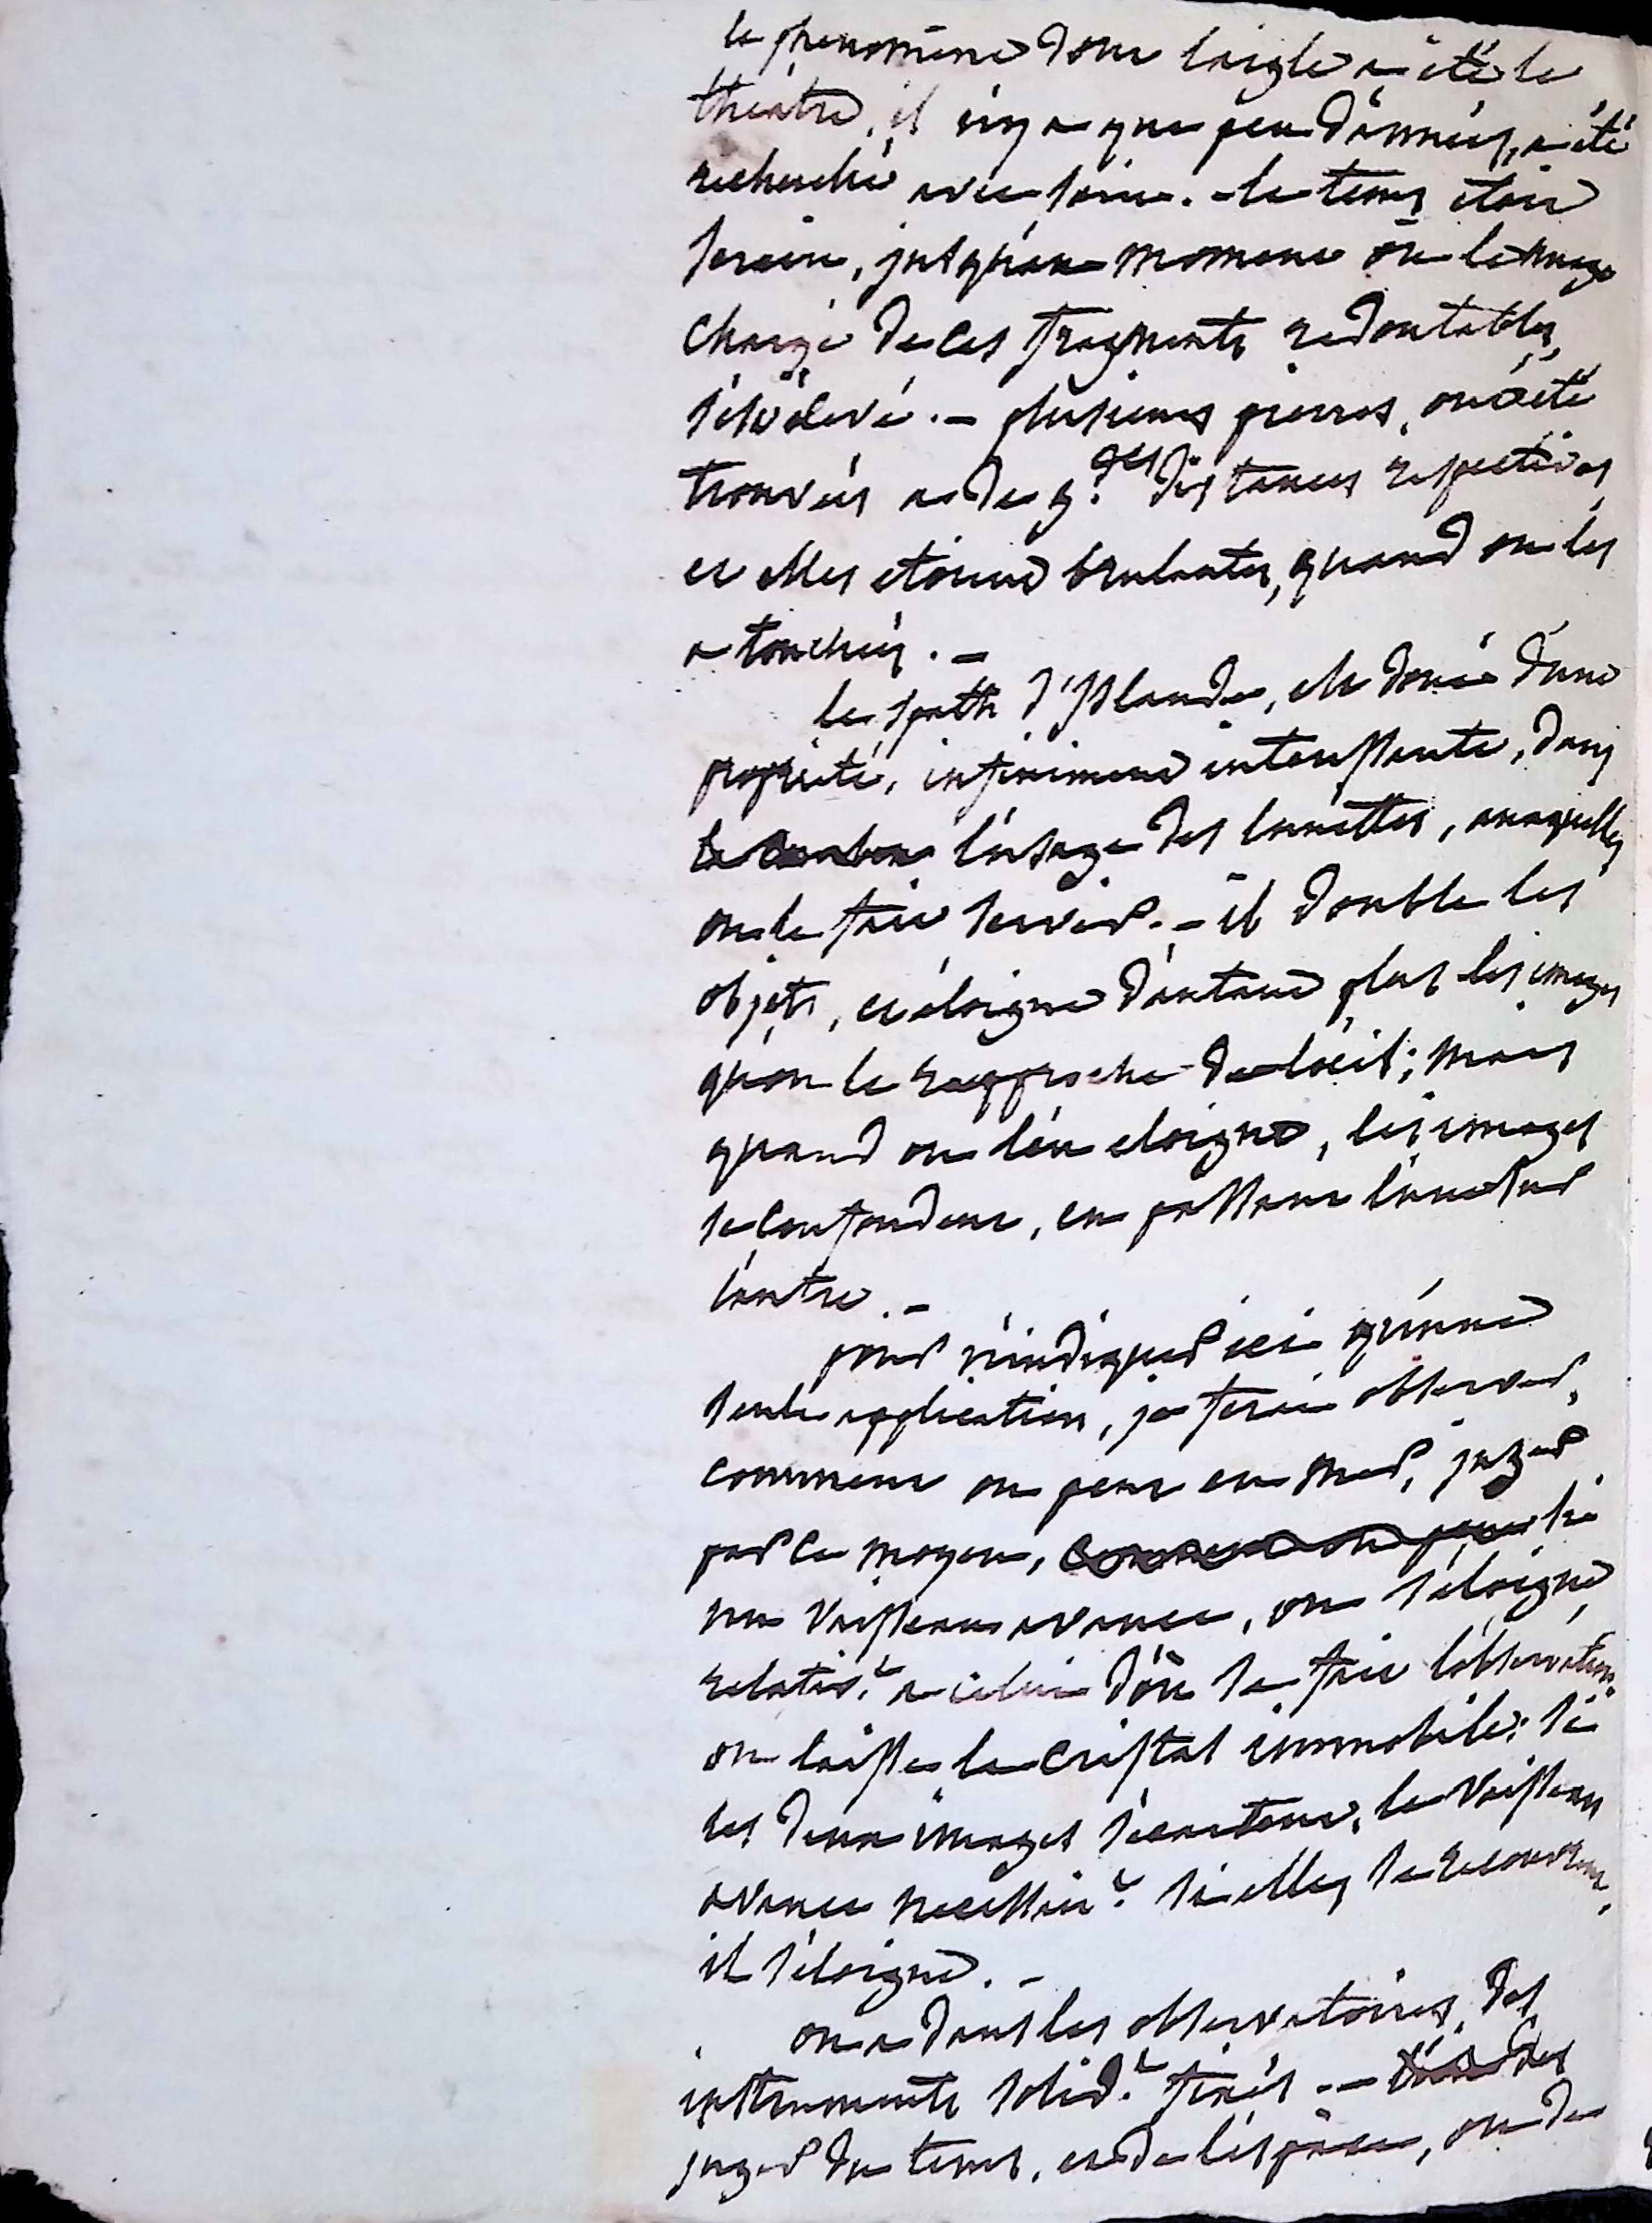 le phenomène dont laigle a été le
théatre, il n'y a que peu d'années, a été
recherché avec soin. - le tems etoit
serein, jusqu'au moment où le nuage
chargé de ces fragments redoutables,
s'est élevé. - plusieurs pierres, ont été
trouvées a de g.des distances respectives,
et elles etoient brulantes, quand on les
a touchées. -
le spath d'Islande, est doué d'une
propriété, infiniment interessante, dans
l'usage des lunettes, auxquelles
on le fait servir. - il double les
objets, et éloigne d'autant plus les images
qu'on le rapproche de l'oeil; mais
quand on l'en eloigne, les images
se confondent, en passant l'une sur
l'autre. -
pour n'indiquer ici qu'une
seule application, je ferai observer,
comment on peut en mer, juger
par ce moyen, si
un vaisseau avance, ou s'éloigne,
relativ.t a celui d'où se fait l'observation.
on laisse le cristal immobile: si
les deux images s'écartent, le vaisseau
avance necessair.t si elles se recouvrent,
il s'éloigne. -
on a dans les observatoires, des
instruments solid.t fixés. - 
juger du tems, et de l'espace, ou de